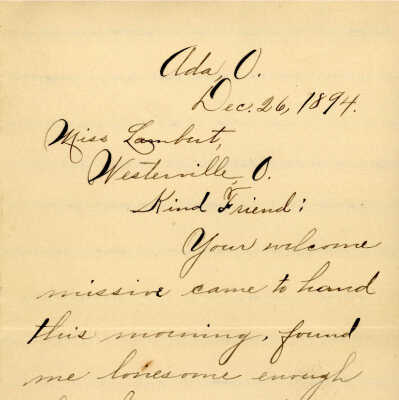 Ada, O.
Dec. 26, 1894.
Miss Lambert,
Westerville, O.
Kind Friend:
Your welcome
missive came to hand
this morning, found
me lonesome enough